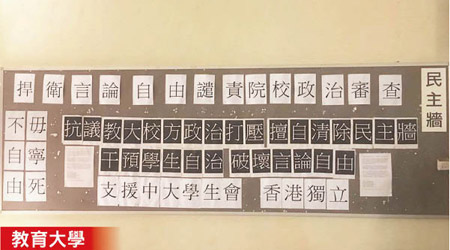 民主牆
捍衛言論自由譴責院校政治審查
不自由
毋寧死
抗議教大校方政治打壓擅自清除民主牆
干預學生自治 破壞言論自由
支援中大學生會 香港獨立
教育大學